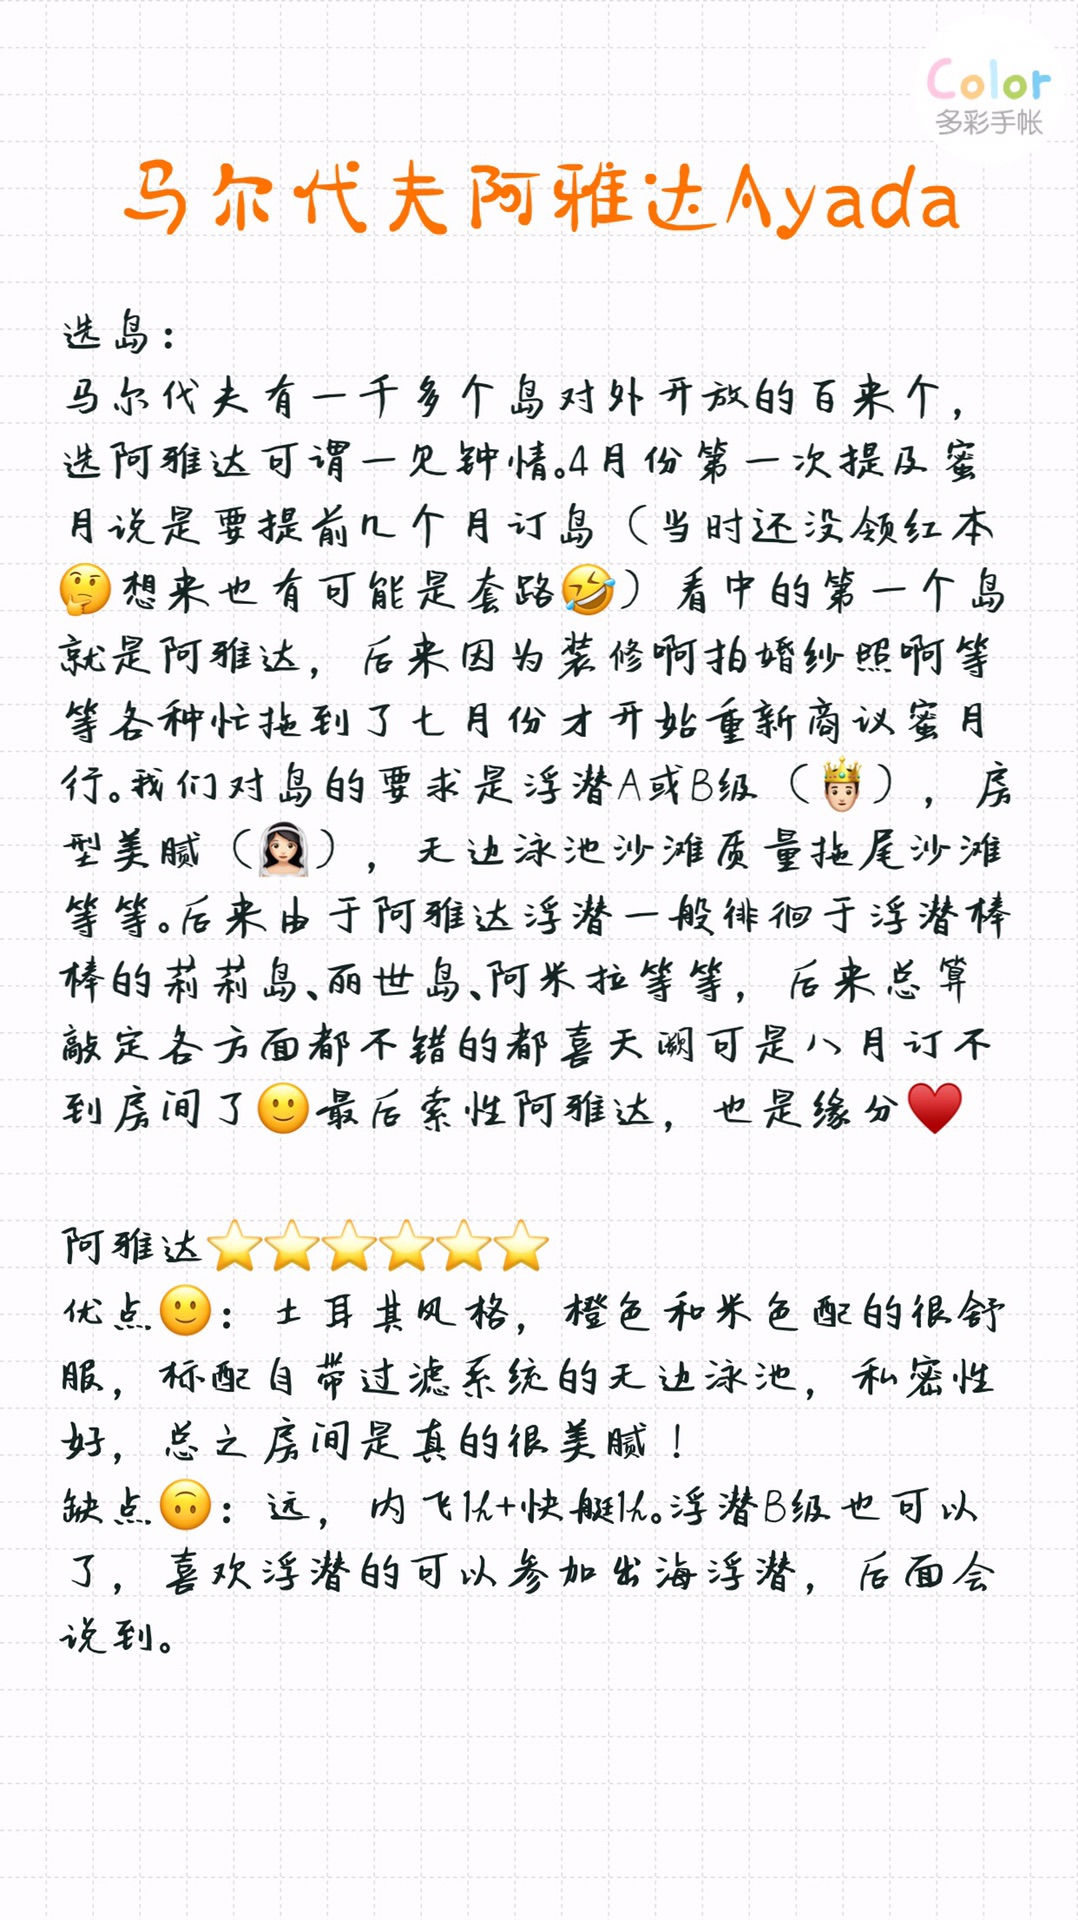 Color
多彩手帐
马尔代夫阿雅达Ayada
选岛：
马尔代夫有一千多个岛对外开放的百来个，
选阿雅达可谓一见钟情。4月份第一次提及蜜
月说是要提前几个月订岛（当时还没领红本
🤔想来也有可能是套路🤣）看中的第一个岛
就是阿雅达，后来因为装修啊拍婚纱照啊等
等各种忙拖到了七月份才开始重新商议蜜月
行。我们对岛的要求是浮潜A或B级（🤴🏻），房
型美腻（👰🏻），无边泳池沙滩质量拖尾沙滩
等等。后来由于阿雅达浮潜一般徘徊于浮潜棒
棒的莉莉岛、丽世岛、阿米拉等等，后来总算
敲定各方面都不错的都喜天阙可是八月订不
到房间了🙂最后索性阿雅达，也是缘分♥️
阿雅达⭐⭐⭐⭐⭐⭐
优点🙂：土耳其风格，橙色和米色配的很舒
服，标配自带过滤系统的无边泳池，私密性
好，总之房间是真的很美腻！
缺点🙃：远，内飞1h+快艇1h。浮潜B级也可以
了，喜欢浮潜的可以参加出海浮潜，后面会
说到。